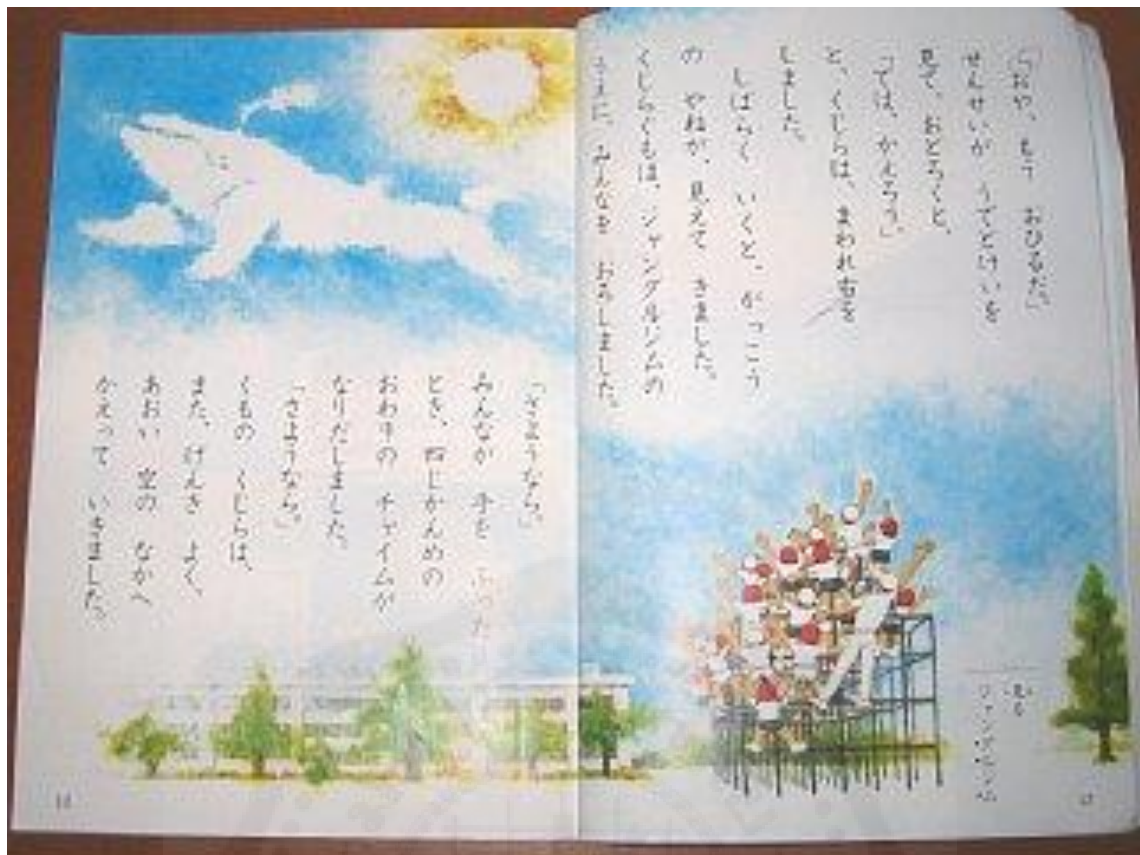 「おや、もう おひるだ。」
せんせいが うでどけいを
見て、おどろくと、
「では、かえろう。」
と、くじらは、まわれ右を
しました。
しばらく いくと、がっこう
の やねが、見えて きました。
くじらぐもは、ジャングルジムの
うえに、みんなを おろしました。
見る
ジャングルジム
「さようなら。」
みんなが 手を ふった
とき、四じかんめの
おわりの チャイムが
なりだしました。
「さようなら。」
くもの くじらは、
また、げんき よく、
あおい 空の なかへ
かえって いきました。